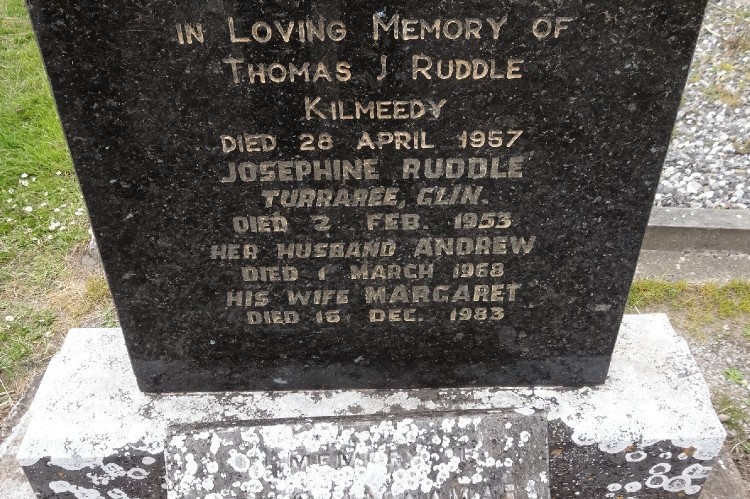 IN LOVING MEMORY OF
THOMAS J RUDDLE
KILMEEDY
DIED 28 APRIL 1957
JOSEPHINE RUDDLE
TURRAREE, GLIN.
DIED 2 FEB. 1953
HER HUSBAND ANDREW
DIED 1 MARCH 1968
HIS WIFE MARGARET
DIED 16 DEC. 1983
MEMORY